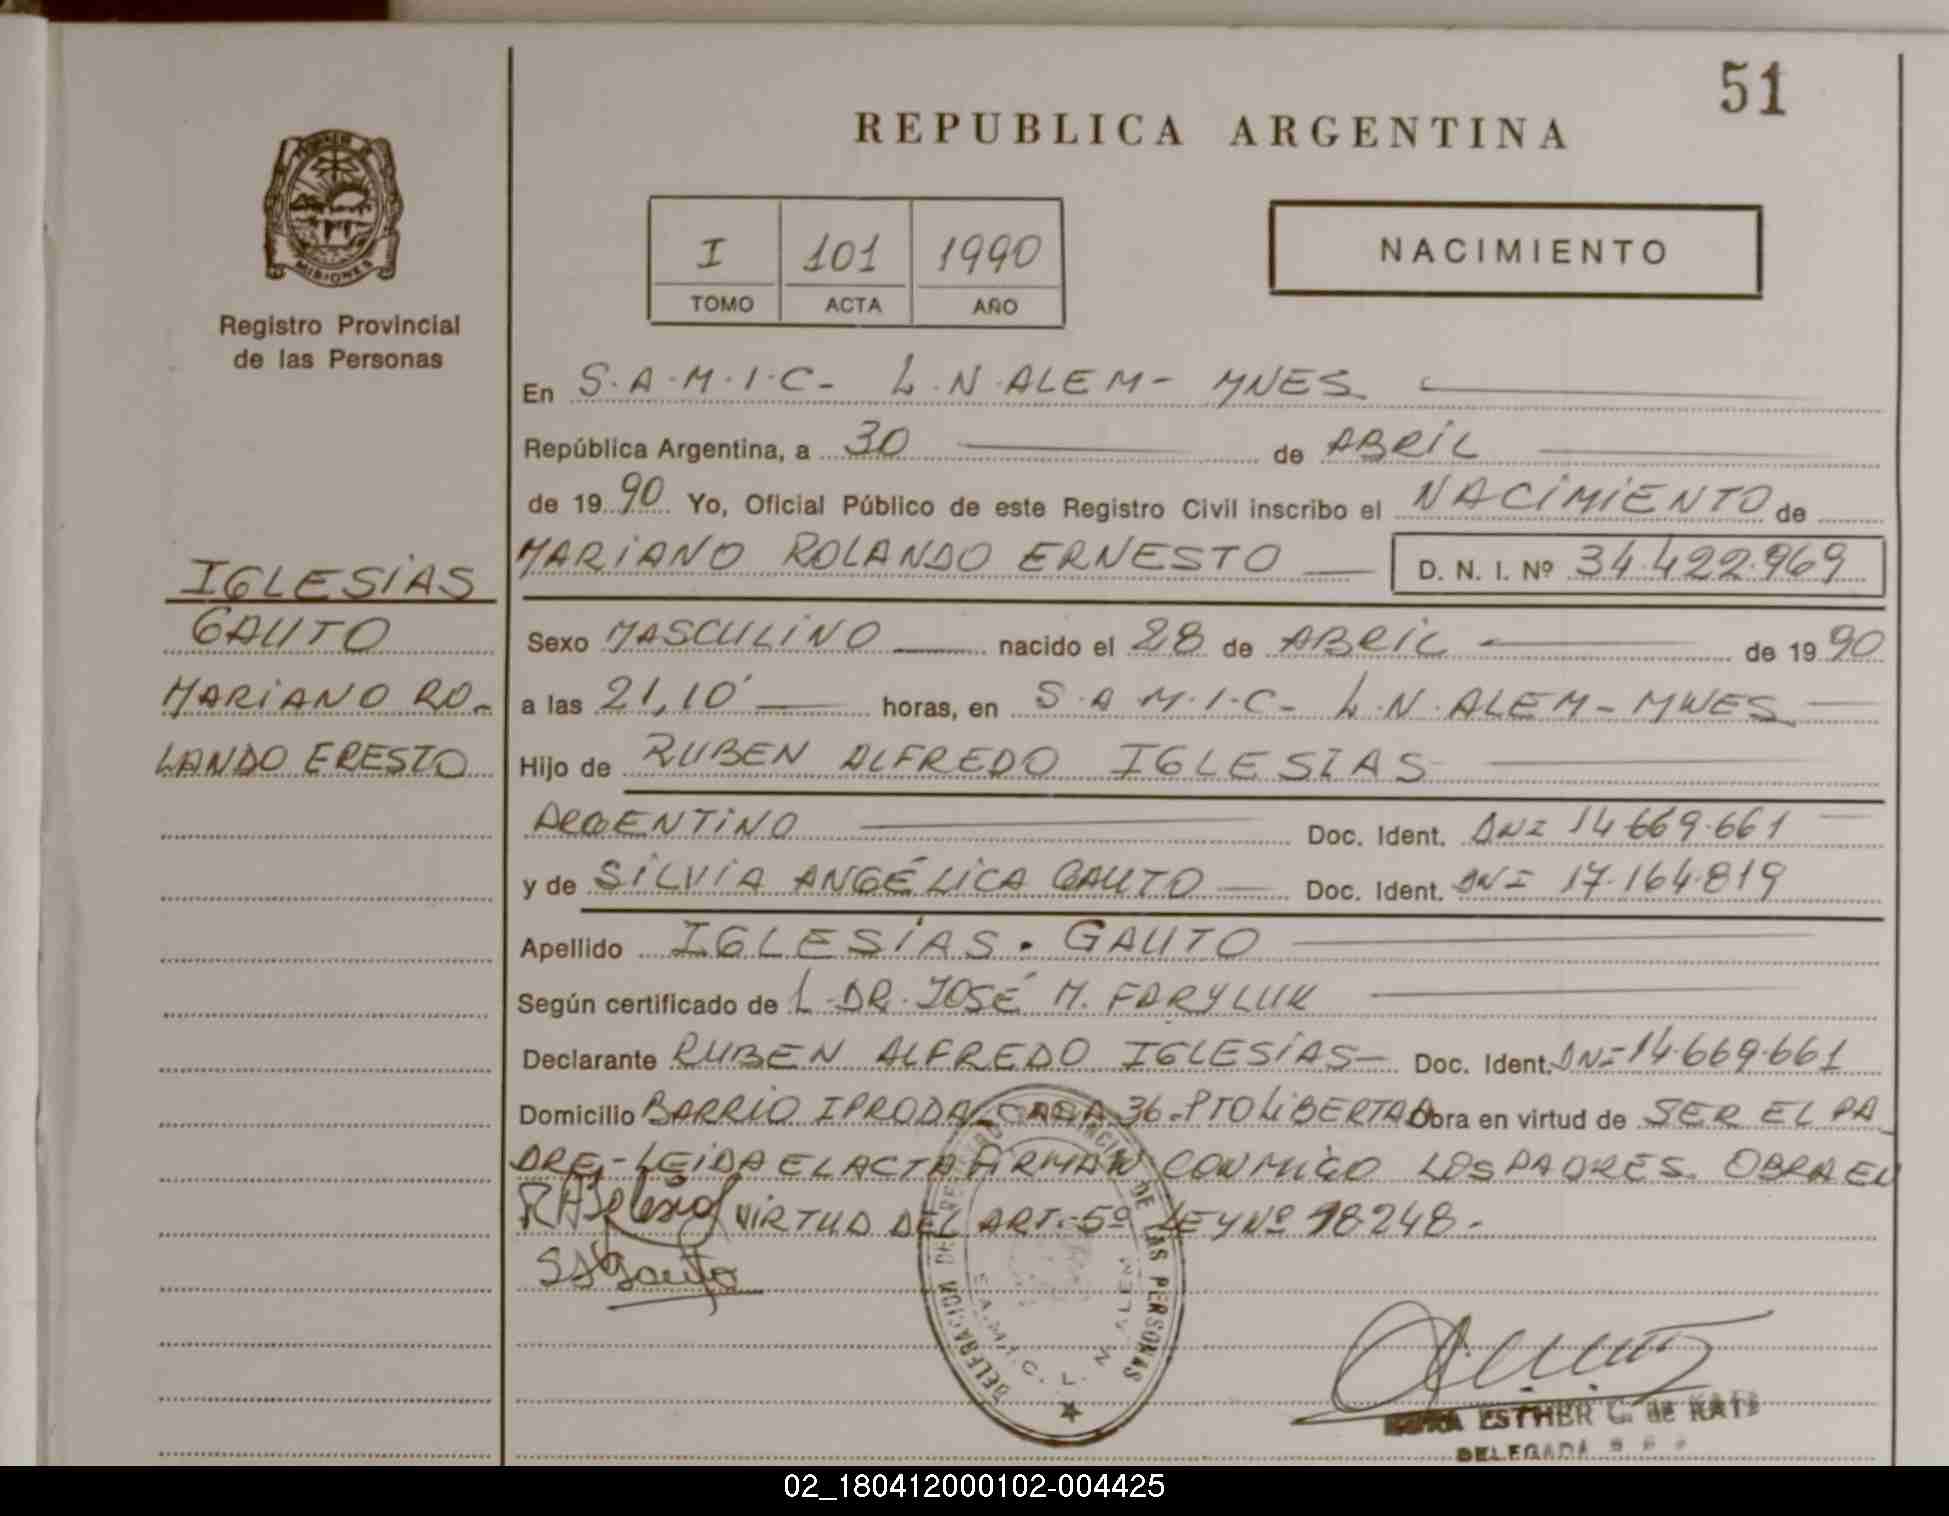 51
REPUBLICA ARGENTINA
MISIONES
Registro Provincial
de las Personas
I 101 1990
TOMO ACTA AÑO
NACIMIENTO
En S.A.M.I.C- L.N.ALEM- MNES
República Argentina, a 30 de ABRIL
de 1990 Yo, Oficial Público de este Registro Civil inscribo el NACIMIENTO de
MARIANO ROLANDO ERNESTO D. N. I. Nº 34.422.969
IGLESIAS
GAUTO
MARIANO RO-
LANDO ERESTO
Sexo MASCULINO nacido el 28 de ABRIL de 1990
a las 21,10' horas, en S.A.M.I.C- L.N.ALEM- MNES
Hijo de RUBEN ALFREDO IGLESIAS
ARGENTINO Doc. Ident. DNI 14.669.661
y de SILVIA ANGÉLICA GAUTO Doc. Ident. DNI 17.164.819
Apellido IGLESIAS. GAUTO
Según certificado de L.DR. JOSÉ M. FARYLUK
Declarante RUBEN ALFREDO IGLESIAS- Doc. Ident. DNI 14.669.661
Domicilio BARRIO IPRODA CASA 36-PTO LIBERTAD Obra en virtud de SER EL PA-
DRE-LEIDA EL ACTA FIRMAN CONMIGO LOS PADRES. OBRA EN
VIRTUD DEL ART.-5º LEY Nº 18248.-
RAIglesias
SAGauto
DELEGACION DE LAS PERSONAS
S.A.M.I.C. L. N. ALEM
ESTHER C. de KATZ
DELEGADA
02_180412000102-004425